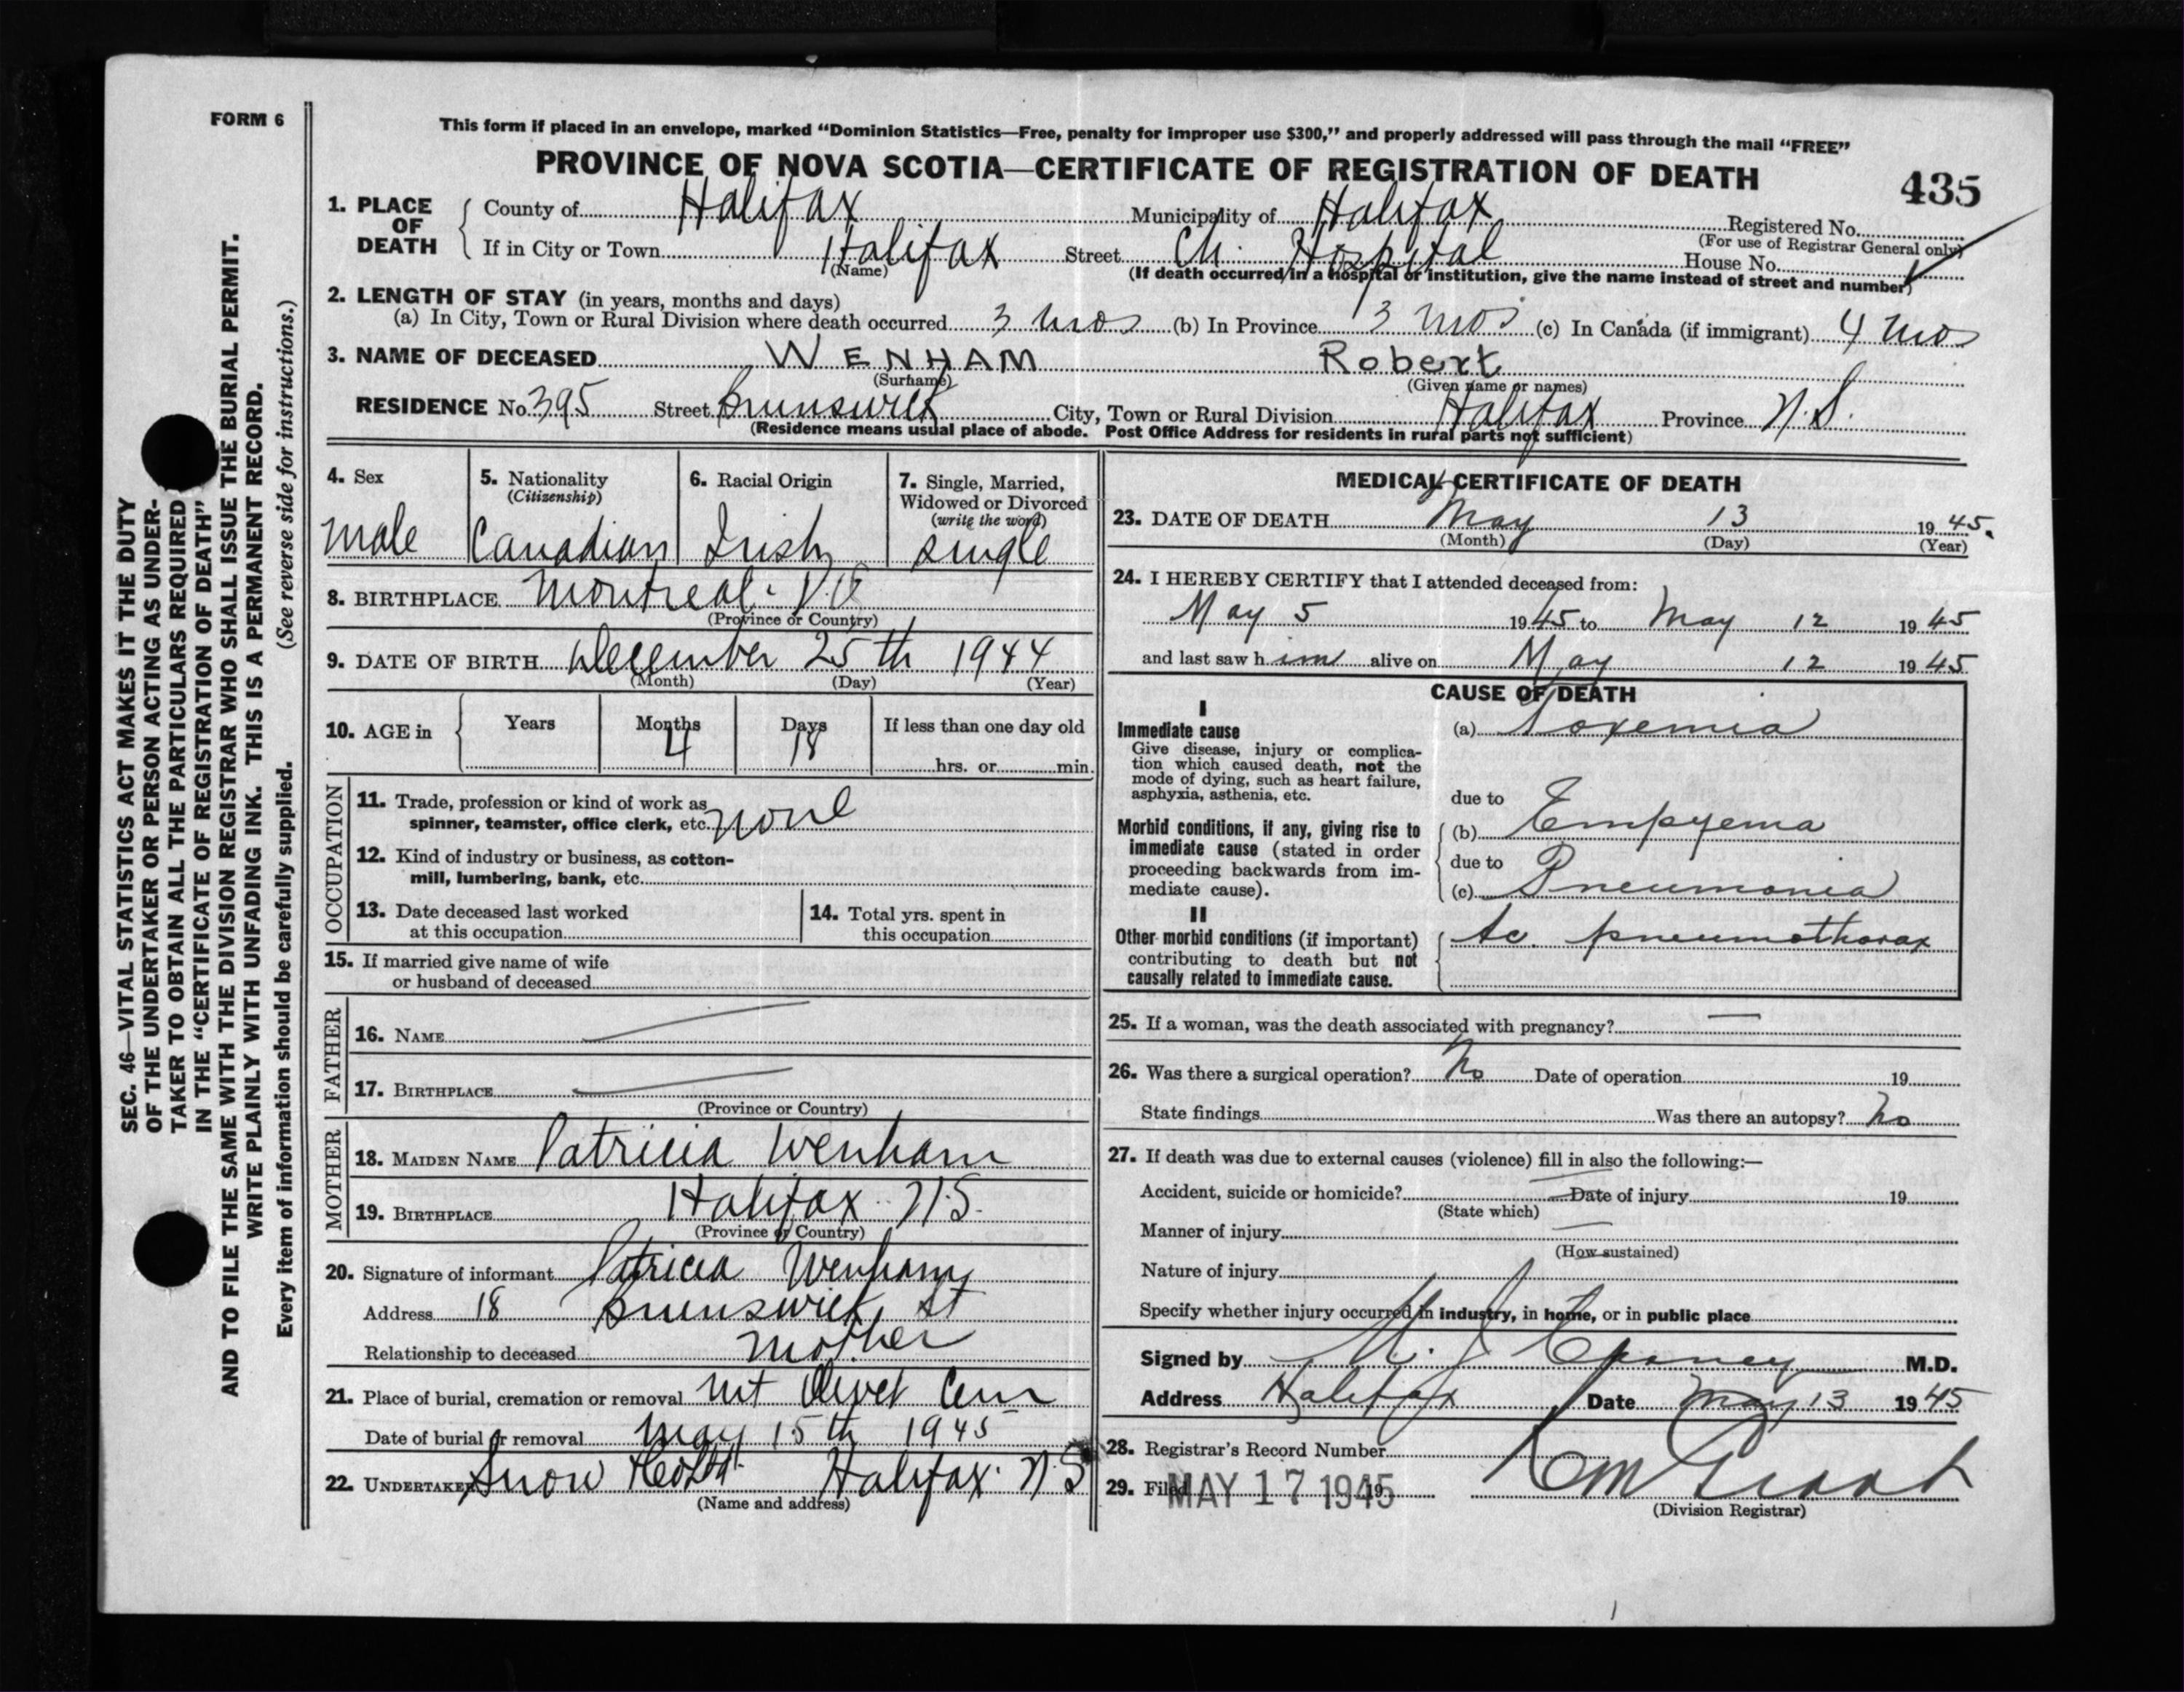 FORM 6
This form if placed in an envelope, marked “Dominion Statistics—Free, penalty for improper use $300,” and properly addressed will pass through the mail “FREE”
PROVINCE OF NOVA SCOTIA—CERTIFICATE OF REGISTRATION OF DEATH
435
1. PLACE OF DEATH
County of Halifax Municipality of Halifax Registered No.
(For use of Registrar General only)
If in City or Town Halifax Street Ch. Hospital House No.
(Name) (If death occurred in a hospital or institution, give the name instead of street and number)
2. LENGTH OF STAY (in years, months and days)
(a) In City, Town or Rural Division where death occurred 3 mos (b) In Province 3 mos (c) In Canada (if immigrant) 4 mos
3. NAME OF DECEASED WENHAM Robert
(Surname) (Given name or names)
RESIDENCE No. 395 Street Brunswick City, Town or Rural Division Halifax Province N.S.
(Residence means usual place of abode. Post Office Address for residents in rural parts not sufficient)
4. Sex
male
5. Nationality
(Citizenship)
Canadian
6. Racial Origin
Irish
7. Single, Married,
Widowed or Divorced
(write the word)
single
8. BIRTHPLACE Montreal. P.Q
(Province or Country)
9. DATE OF BIRTH December 25th 1944
(Month) (Day) (Year)
10. AGE in Years Months Days If less than one day old
4 18
hrs. or min.
OCCUPATION
11. Trade, profession or kind of work as
spinner, teamster, office clerk, etc. none
12. Kind of industry or business, as cotton-
mill, lumbering, bank, etc.
13. Date deceased last worked
at this occupation
14. Total yrs. spent in
this occupation
15. If married give name of wife
or husband of deceased
FATHER
16. NAME
17. BIRTHPLACE
(Province or Country)
MOTHER
18. MAIDEN NAME Patricia Wenham
19. BIRTHPLACE Halifax N.S.
(Province or Country)
20. Signature of informant Patricia Wenham
Address 18 Brunswick St
Relationship to deceased Mother
21. Place of burial, cremation or removal Mt Olivet Cem
Date of burial or removal May 15th 1945
22. UNDERTAKER Snow Halifax. N.S
(Name and address)
MEDICAL CERTIFICATE OF DEATH
23. DATE OF DEATH May 13 1945.
(Month) (Day) (Year)
24. I HEREBY CERTIFY that I attended deceased from:
May 5 1945 to May 12 1945
and last saw him alive on May 12 1945
CAUSE OF DEATH
I
Immediate cause
Give disease, injury or complica-
tion which caused death, not the
mode of dying, such as heart failure,
asphyxia, asthenia, etc.
(a) Toxemia
due to
Morbid conditions, if any, giving rise to
immediate cause (stated in order
proceeding backwards from im-
mediate cause).
(b) Empyema
due to
(c) Pneumonia
II
Other morbid conditions (if important)
contributing to death but not
causally related to immediate cause.
Ac. pneumothorax
25. If a woman, was the death associated with pregnancy? —
26. Was there a surgical operation? No Date of operation 19
State findings Was there an autopsy? No
27. If death was due to external causes (violence) fill in also the following:—
Accident, suicide or homicide? Date of injury 19
(State which)
Manner of injury
(How sustained)
Nature of injury
Specify whether injury occurred in industry, in home, or in public place
Signed by M.D.
Address Halifax Date May 13 1945
28. Registrar's Record Number
29. Filed MAY 17 1945 19
(Division Registrar)
SEC. 46—VITAL STATISTICS ACT MAKES IT THE DUTY
OF THE UNDERTAKER OR PERSON ACTING AS UNDER-
TAKER TO OBTAIN ALL THE PARTICULARS REQUIRED
IN THE “CERTIFICATE OF REGISTRATION OF DEATH”
AND TO FILE THE SAME WITH THE DIVISION REGISTRAR WHO SHALL ISSUE THE BURIAL PERMIT.
WRITE PLAINLY WITH UNFADING INK. THIS IS A PERMANENT RECORD.
Every item of information should be carefully supplied. (See reverse side for instructions.)